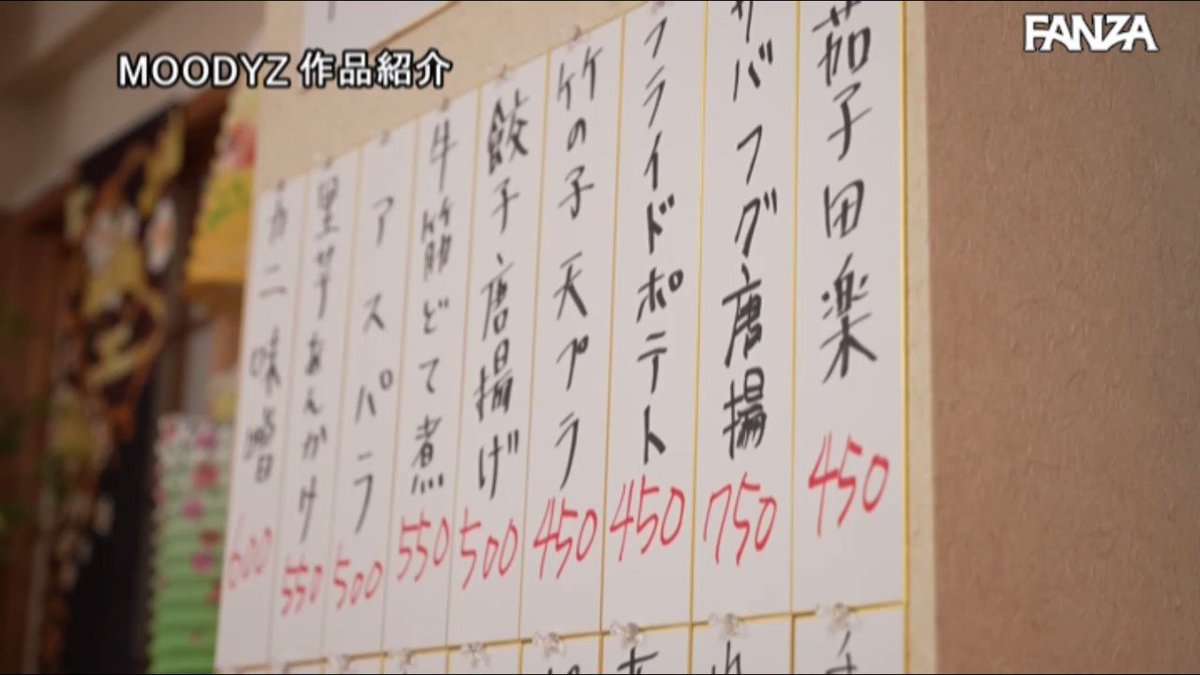 MOODYZ 作品紹介
FANZA
茄子田楽 450
サバフグ唐揚 750
フライドポテト 450
竹の子天プラ 450
餃子唐揚げ 500
牛筋どて煮 550
アスパラ 500
里芋あんかけ 550
カニ味噌 600